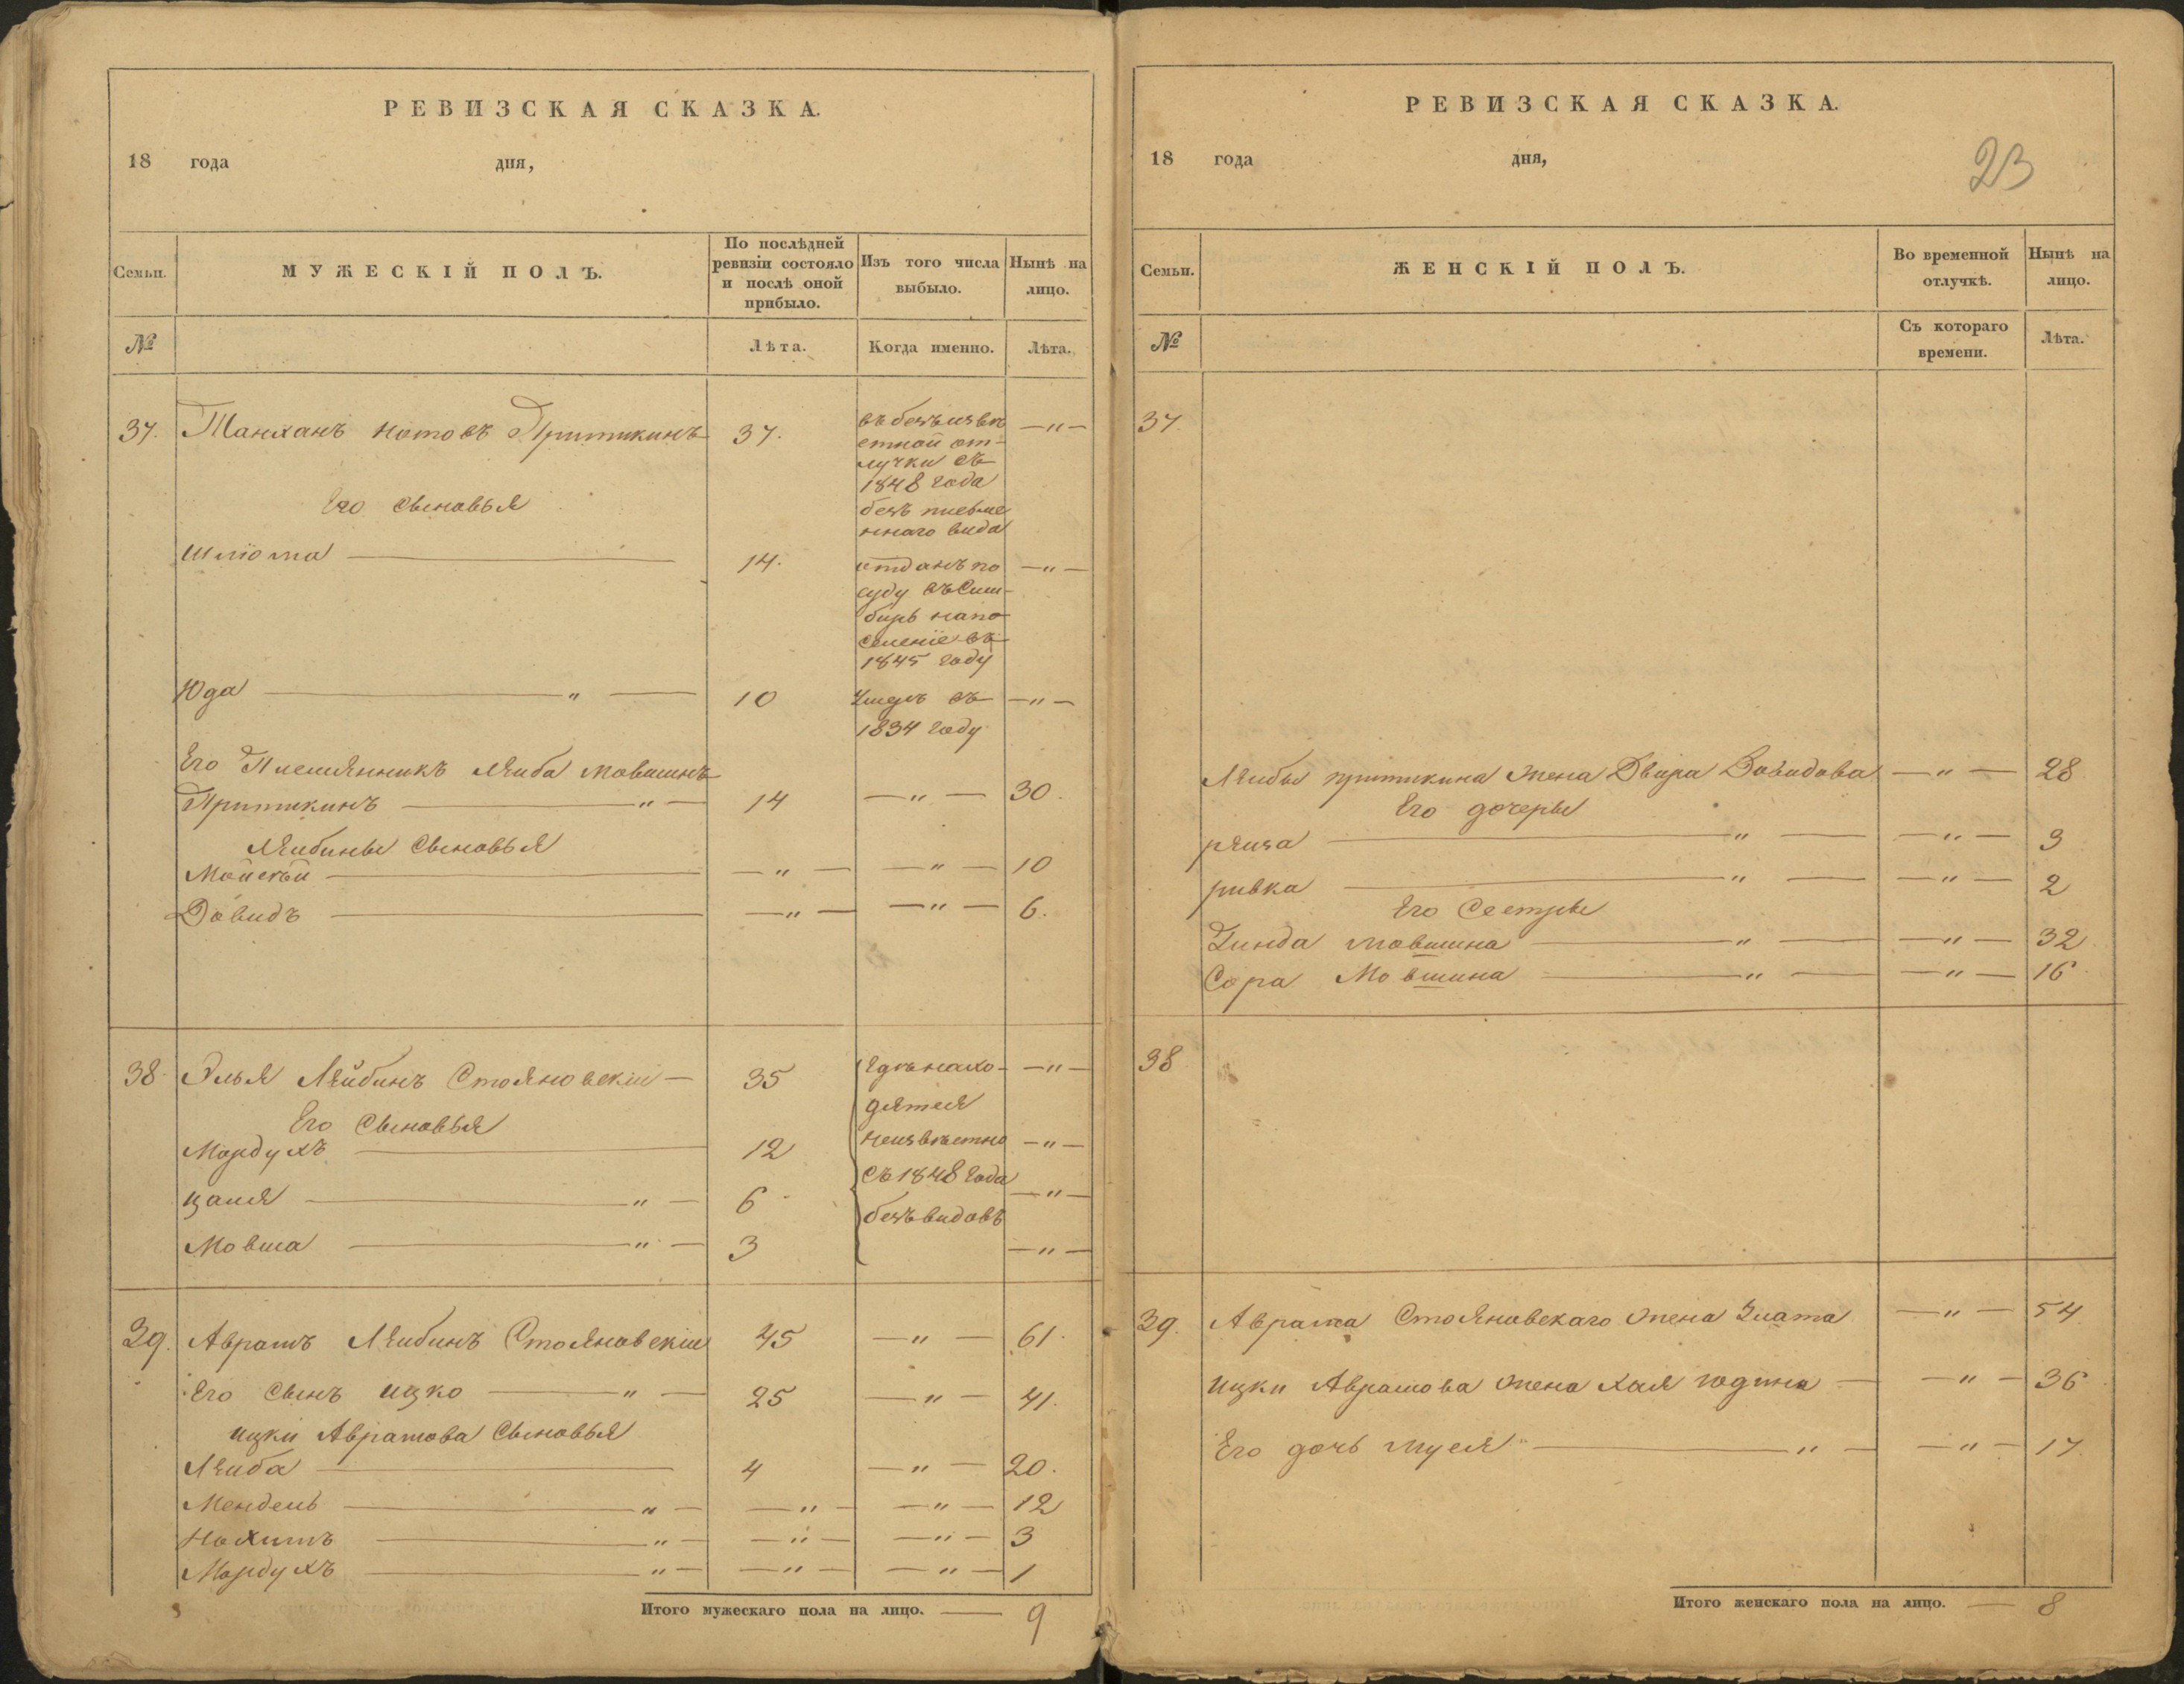 РЕВИЗСКАЯ СКАЗКА.
18 года дня,
Семьи. МУЖЕСКІЙ ПОЛЪ. По послѣдней ревизіи состояло и послѣ оной прибыло. Изъ того числа выбыло. Нынѣ на лицо.
№ Лѣта. Когда именно. Лѣта.
37. Танханъ Нотовъ Притыкинъ 37. — " —
въ безъизвѣ
стной от-
лучки съ
1848 года
безъ письме
ннаго вида
Его Сыновья
Шліома 14. — " —
отданъ по
суду въ Сим-
бирь на по
селеніе въ
1845 году
Юда — " — 10 Умеръ въ — " —
1834 году
Его Племянникъ Лѣиба Мовшинъ
Притыкинъ — " — 14 — " — 30.
Лѣибины Сыновья
Мойсѣй — " — — " — 10
Довидъ — " — — " — 6.
38. Элья Лѣйбинъ Стояновскій — 35 Гдѣ нахо- — " —
дятся
Его Сыновья
Мордухъ 12 неизвѣстно — " —
съ 1848 года
цаля — " — 6 — " —
безъ видовъ
Мовша — " — 3 — " —
39. Аврамъ Лѣибинъ Стояновскій 45 — " — 61.
Его Сынъ ицко — " — 25 — " — 41.
ицки Аврамова Сыновья
Лѣиба 4 — " — 20.
Мендель — " — — " — — " — 12
Нохимъ — " — — " — — " — 3
Мордухъ — " — — " — — " — 1
Итого мужескаго пола на лицо. — 9
РЕВИЗСКАЯ СКАЗКА.
18 года дня,
23
Семьи. ЖЕНСКІЙ ПОЛЪ. Во временной отлучкѣ. Нынѣ на лицо.
№ Съ котораго времени. Лѣта.
37.
Лѣибы притыкина жена Двира Довидова — " — 28
Его дочеры
рѣиза — " — — " — 3
ривка — " — — " — 2
Его Сестры
Зинда мовшина — " — — " — 32
Сора Мовшина — " — — " — 16
38
39. Аврама Стояновскаго жена Злата — " — 54
Ицки Аврамова жена Хая юдина — — " — 36
Его дочь муся — " — — " — 17.
Итого женскаго пола на лицо. — 8